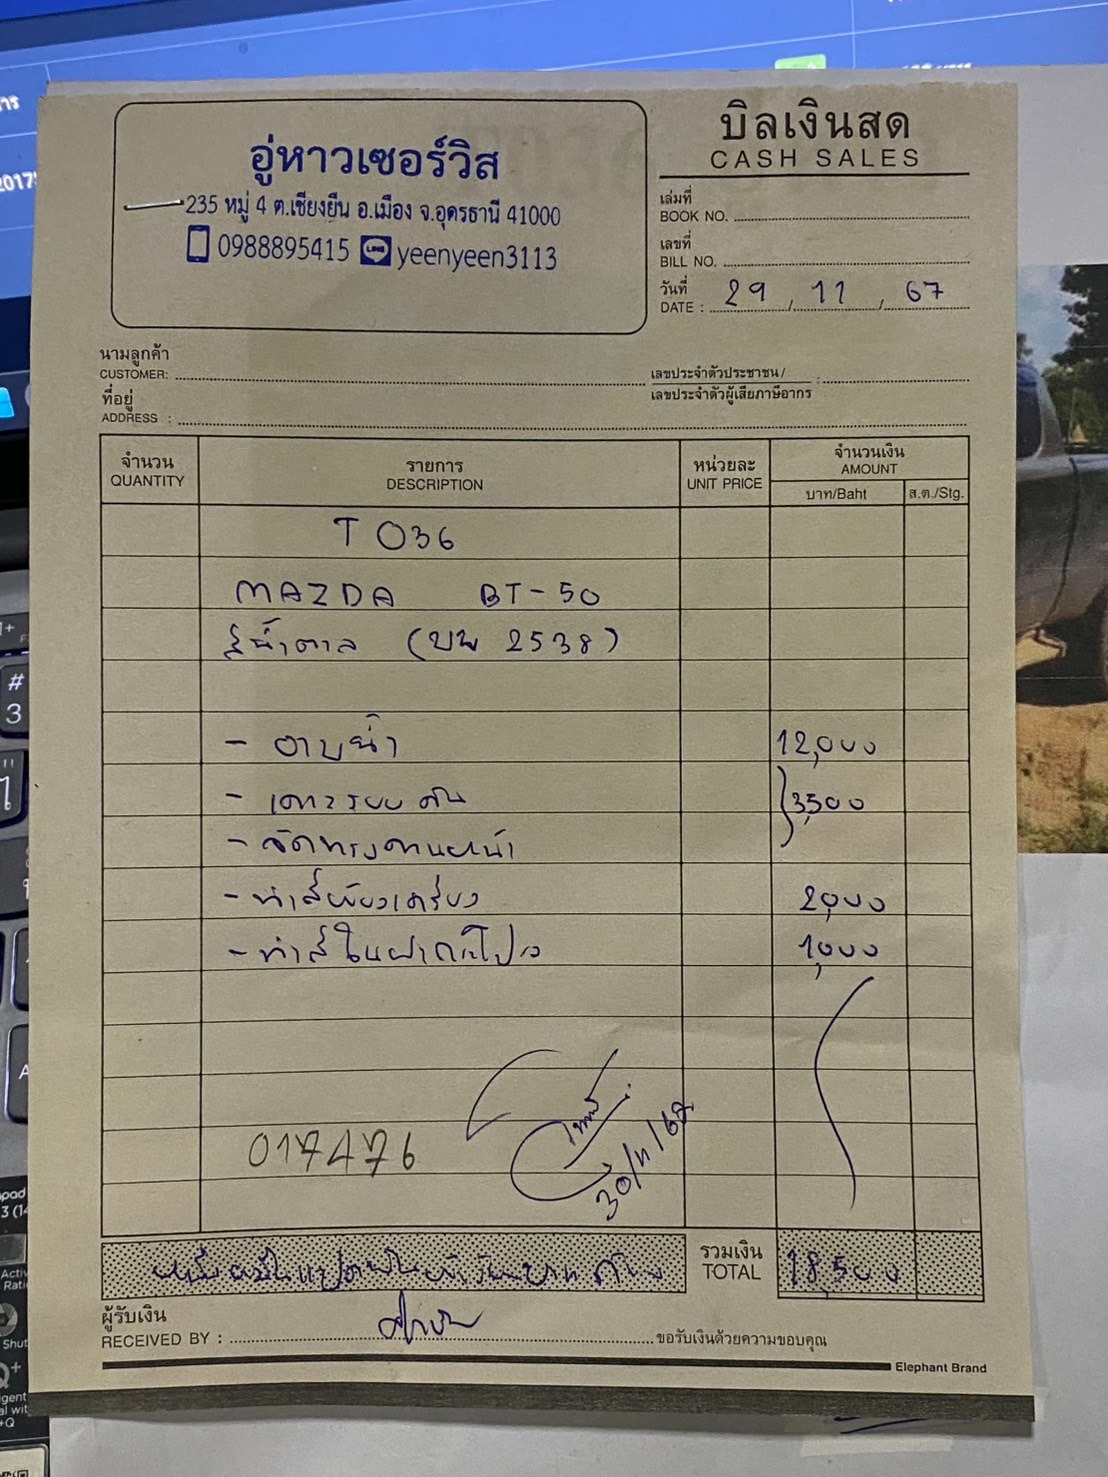 บิลเงินสด
CASH SALES
อู่หาวเซอร์วิส
235 หมู่ 4 ต.เชียงยืน อ.เมือง จ.อุดรธานี 41000
0988895415 LINE yeenyeen3113
เล่มที่
BOOK NO.
เลขที่
BILL NO.
วันที่
DATE : 29 / 11 / 67
นามลูกค้า
CUSTOMER:
เลขประจำตัวประชาชน/ :
เลขประจำตัวผู้เสียภาษีอากร
ที่อยู่
ADDRESS :
จำนวน รายการ หน่วยละ จำนวนเงิน
QUANTITY DESCRIPTION UNIT PRICE AMOUNT
บาท/Baht ส.ต./Stg.
T 036
MAZDA BT-50
สีน้ำตาล (บพ 2538)
- อาบน้ำ 12,000
- เคาะรอบคัน 3,500
- จัดทรงคานหน้า
- ทำสีห้องเครื่อง 2,000
- ทำสีในฝากระโปรง 1,000
017476
30/11/67
รวมเงิน
TOTAL 18,500
ผู้รับเงิน
RECEIVED BY : ขอรับเงินด้วยความขอบคุณ
Elephant Brand